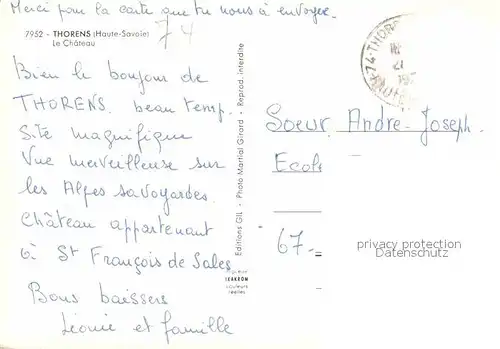 Merci pour la carte que tu nous à envoyée.
7952 - THORENS (Haute-Savoie)
Le Château
74
Bien le bonjour de
THORENS. beau temp.
Site magnifique
Vue merveilleuse sur
les Alpes savoyardes.
Château appartenant
à St François de Sales
Bons baisers
Léonie et famille
Editions GIL - Photo Martial Girard - Reprod. interdite
couleurs
réelles
74-THOR
21
Soeur Andre-Joseph.
Ecole
67-
privacy protection
Datenschutz